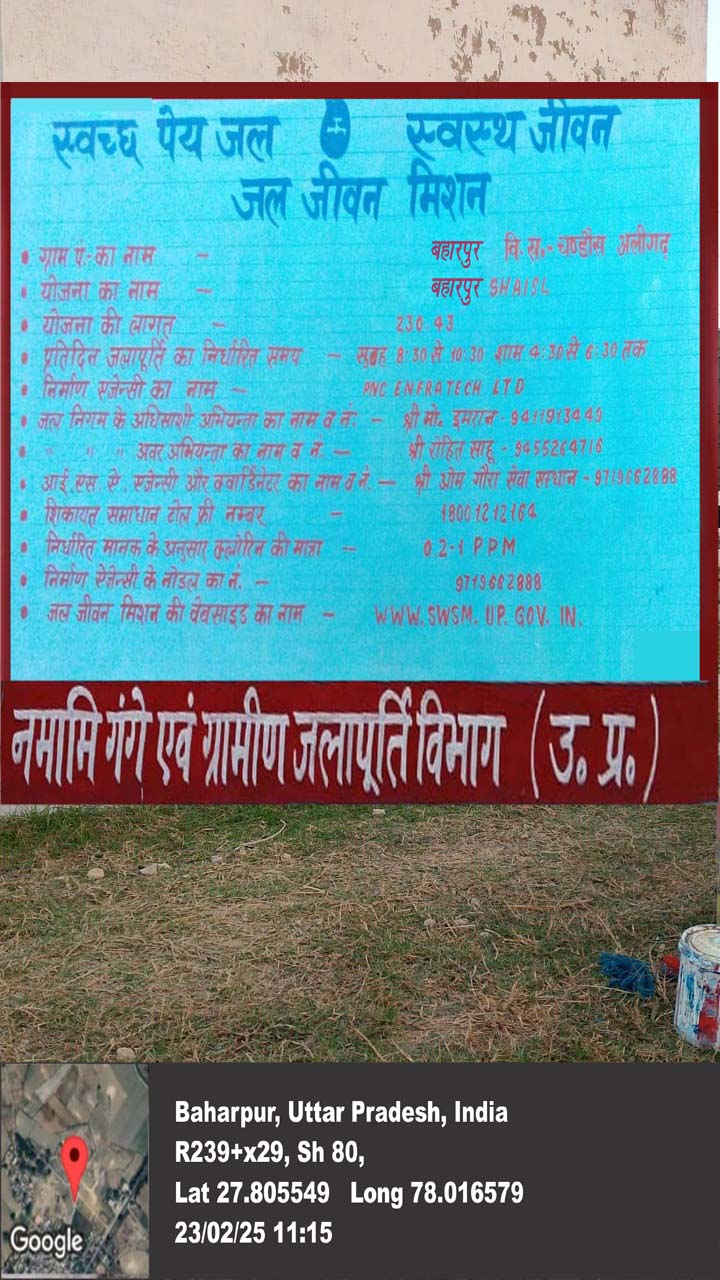 स्वच्छ पेय जल स्वस्थ जीवन
जल जीवन मिशन
• ग्राम पं.-का नाम - बहारपुर वि.ख.- चण्डौस अलीगढ़
• योजना का नाम - बहारपुर SHAISL
• योजना की लागत - 230.43
• प्रतिदिन जलापूर्ति का निर्धारित समय - सुबह 8:30 से 10:30 शाम 4:30 से 6:30 तक
• निर्माण एजेन्सी का नाम - PNC ENFRATECH LTD
• जल निगम के अधिसाशी अभियन्ता का नाम व नं: - श्री मो. इमरान - 9411913449
• " " " अवर अभियन्ता का नाम व नं. - श्री रोहित साहू - 9455264716
• आई.एस.ऐ. एजेन्सी और क्वार्डिनेटर का नाम व नं. - श्री ओम गौरा सेवा सस्थान - 9719662888
• शिकायत समाधान टोल फ्री नम्बर - 18001212164
• निर्धारित मानक के अनुसार क्लोरिन की मात्रा - 0.2-1 PPM
• निर्माण ऐजेन्सी के नोडल का नं. - 9719662888
• जल जीवन मिशन की वेबसाइड का नाम - WWW.SWSM.UP.GOV.IN.
नमामि गंगे एवं ग्रामीण जलापूर्ति विभाग (उ.प्र.)
Baharpur, Uttar Pradesh, India
R239+x29, Sh 80,
Lat 27.805549 Long 78.016579
23/02/25 11:15
Google